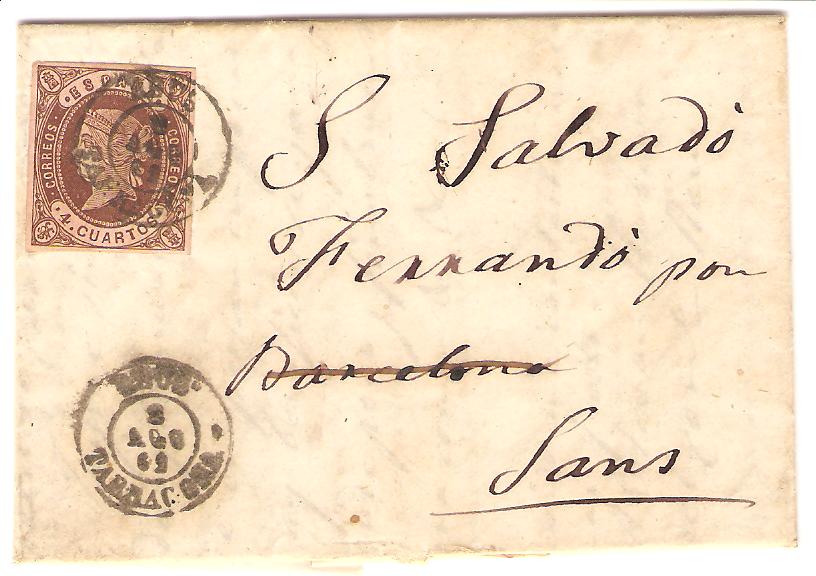 ESPAÑA
CORREOS
CORREOS
4 CUARTOS
S Salvadò
Ferrandò por
Barcelona
Sans
REUS
8
AGO
62
TARRAGONA